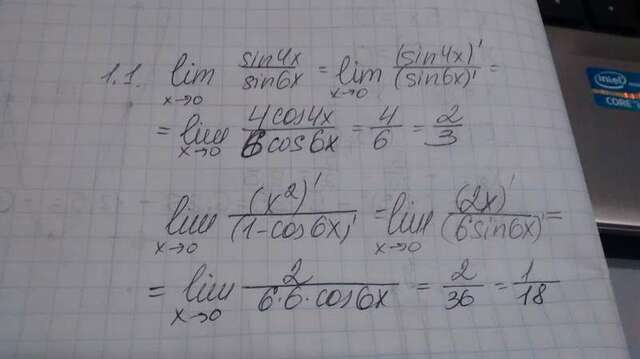 1.1. lim x→0 sin4x/sin6x = lim x→0 (sin4x)'/(sin6x)' =
= lim x→0 4cos4x/6cos6x = 4/6 = 2/3
lim x→0 (x²)'/(1-cos6x)' = lim x→0 (2x)'/(6sin6x)' =
= lim x→0 2/6·6·cos6x = 2/36 = 1/18
intel
CORE